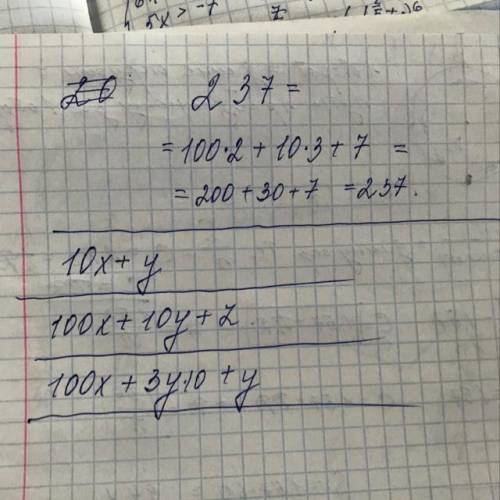 5x > -7
237 =
= 100·2 + 10·3 + 7 =
= 200 + 30 + 7 = 237.
10x + y
100x + 10y + z
100x + 3y·10 + y